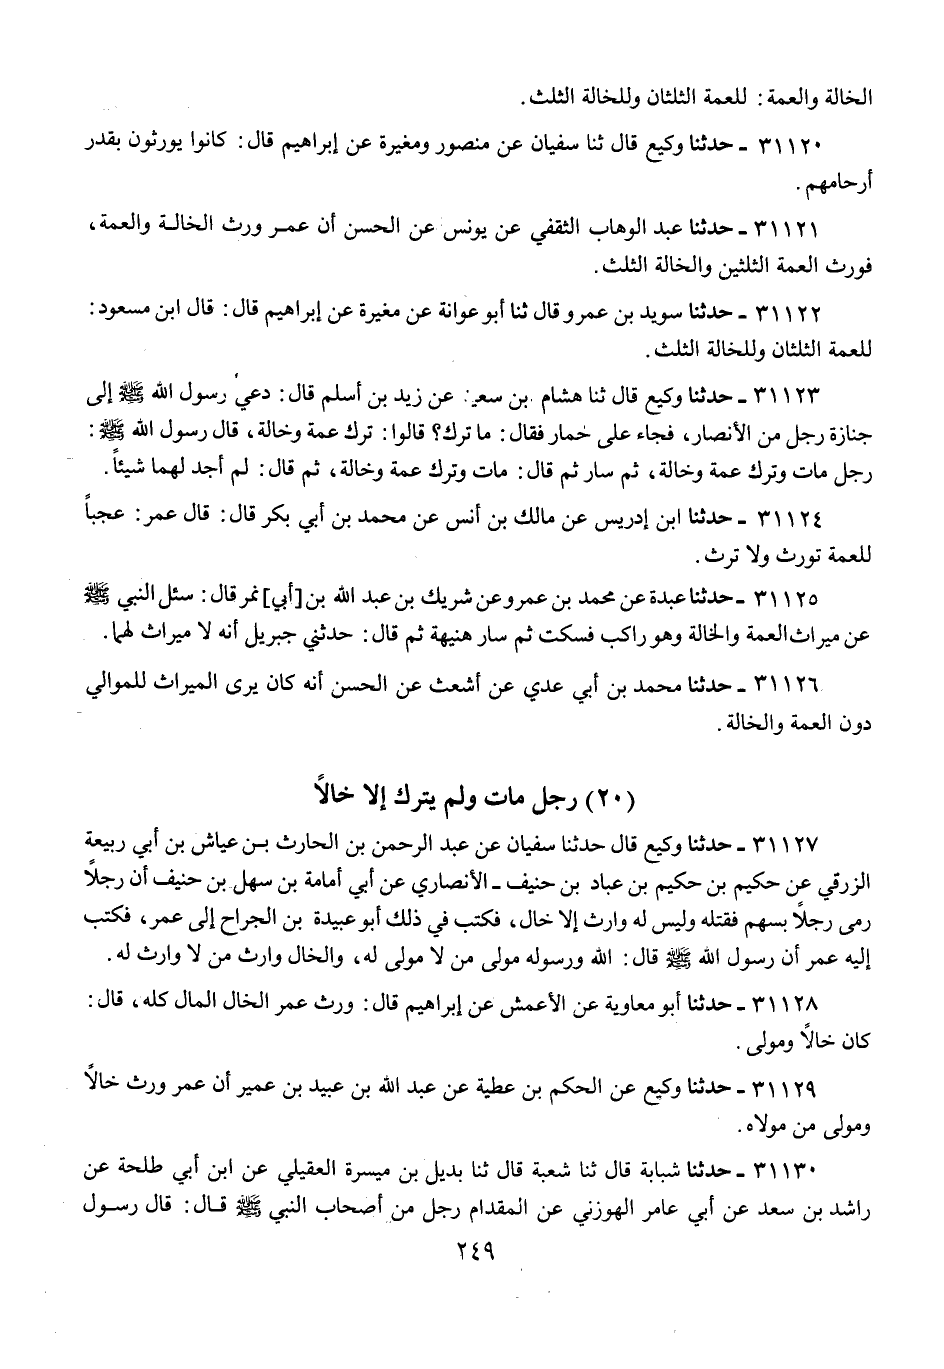 الخالة والعمة : للعمة الثلثان وللخالة الثلث .
٣١١٢٠ ـ حدثنا وكيع قال ثنا سفيان عن منصور ومغيرة عن إبراهيم قال : كانوا يورثون بقدر
أرحامهم .
٣١١٢١ ـ حدثنا عبد الوهاب الثقفي عن يونس عن الحسن أن عمر ورث الخالة والعمة ،
فورث العمة الثلثين والخالة الثلث .
٣١١٢٢ ـ حدثنا سويد بن عمرو قال ثنا أبو عوانة عن مغيرة عن إبراهيم قال : قال ابن مسعود :
للعمة الثلثان وللخالة الثلث .
٣١١٢٣ ـ حدثنا وكيع قال ثنا هشام بن سعد عن زيد بن أسلم قال : دعي رسول الله ﷺ إلى
جنازة رجل من الأنصار ، فجاء على حمار فقال : ما ترك؟ قالوا : ترك عمة وخالة ، قال رسول الله ﷺ :
رجل مات وترك عمة وخالة ، ثم سار ثم قال : مات وترك عمة وخالة ، ثم قال : لم أجد لهما شيئاً .
٣١١٢٤ ـ حدثنا ابن إدريس عن مالك بن أنس عن محمد بن أبي بكر قال : قال عمر : عجباً
للعمة تورث ولا ترث .
٣١١٢٥ ـ حدثنا عبدة عن محمد بن عمرو عن شريك بن عبد الله بن [أبي] نمر قال : سئل النبي ﷺ
عن ميراث العمة والخالة وهو راكب فسكت ثم سار هنيهة ثم قال : حدثني جبريل أنه لا ميراث لهما .
٣١١٢٦ ـ حدثنا محمد بن أبي عدي عن أشعث عن الحسن أنه كان يرى الميراث للموالي
دون العمة والخالة .
(٢٠) رجل مات ولم يترك إلا خالاً
٣١١٢٧ ـ حدثنا وكيع قال حدثنا سفيان عن عبد الرحمن بن الحارث بن عياش بن أبي ربيعة
الزرقي عن حكيم بن حكيم بن عباد بن حنيف ـ الأنصاري عن أبي أمامة بن سهل بن حنيف أن رجلاً
رمى رجلاً بسهم فقتله وليس له وارث إلا خال ، فكتب في ذلك أبو عبيدة بن الجراح إلى عمر ، فكتب
إليه عمر أن رسول الله ﷺ قال : الله ورسوله مولى من لا مولى له ، والخال وارث من لا وارث له .
٣١١٢٨ ـ حدثنا أبو معاوية عن الأعمش عن إبراهيم قال : ورث عمر الخال المال كله ، قال :
كان خالاً ومولى .
٣١١٢٩ ـ حدثنا وكيع عن الحكم بن عطية عن عبد الله بن عبيد بن عمير أن عمر ورث خالاً
ومولى من مولاه .
٣١١٣٠ ـ حدثنا شبابة قال ثنا شعبة قال ثنا بديل بن ميسرة العقيلي عن ابن أبي طلحة عن
راشد بن سعد عن أبي عامر الهوزني عن المقدام رجل من أصحاب النبي ﷺ قال : قال رسول
٢٤٩